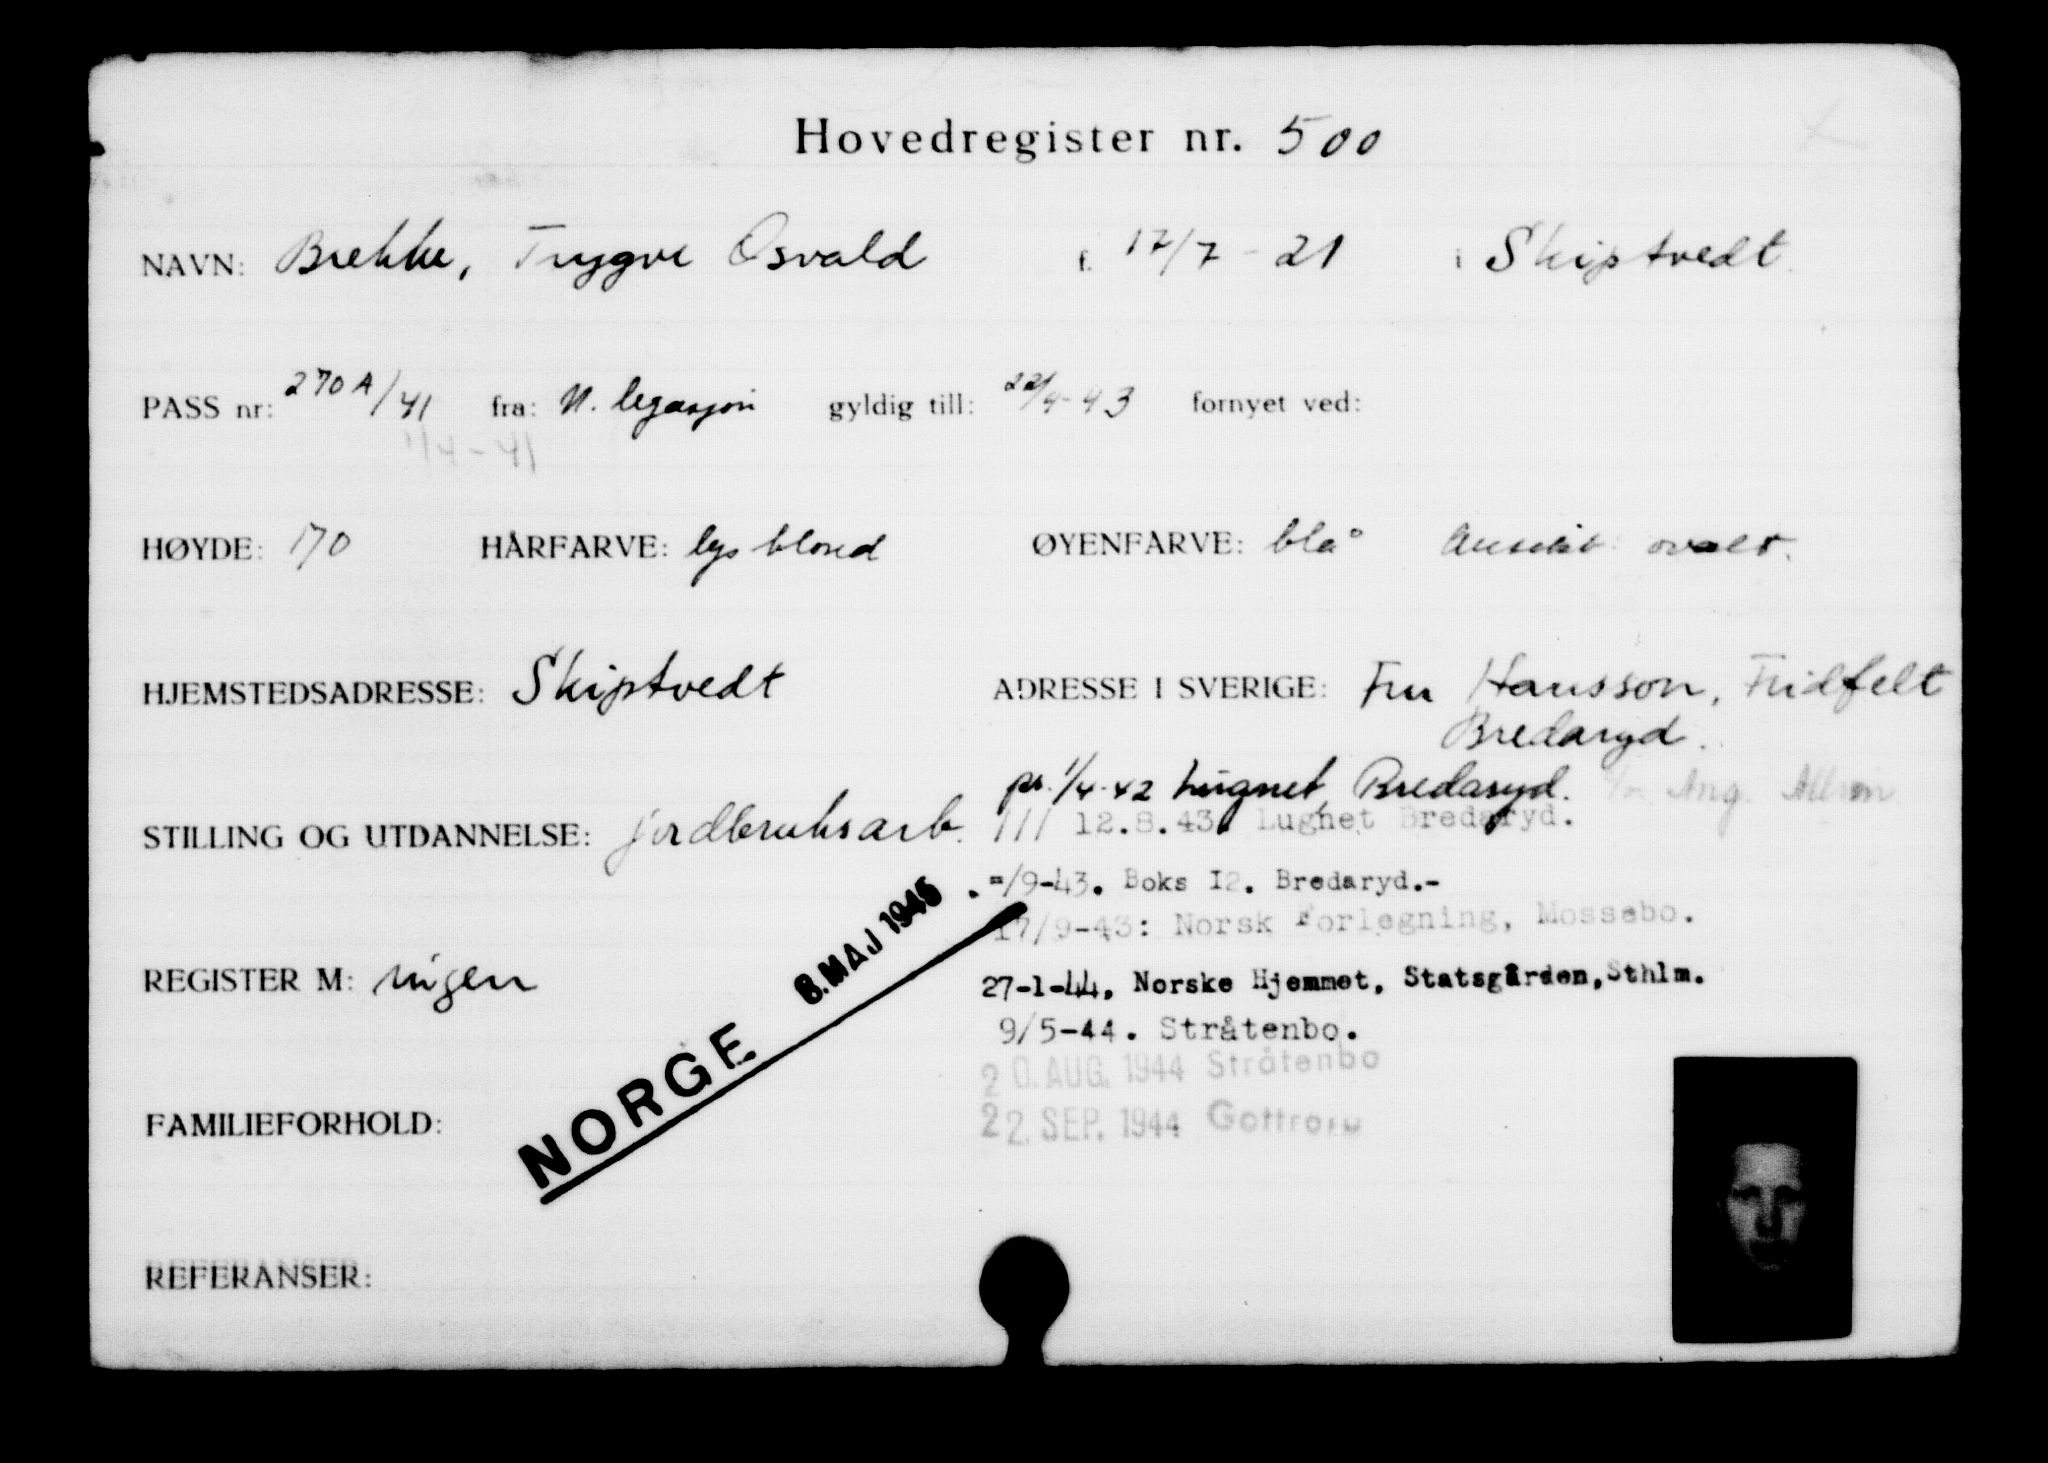 Hovedregister nr. 500
NAVN: Brekke, Trygve Osvald f. 17/7-21 i Skiptvedt.
PASS nr: 270A/41 fra: N. legasjon gyldig till: 22/4-43 fornyet ved:
1/4-41
HØYDE: 170 HÅRFARVE: lys blond ØYENFARVE: blå Ansikt: ovalt.
HJEMSTEDSADRESSE: Skiptvedt ADRESSE I SVERIGE: Fru Hansson, Fridfelt
Bredaryd.
pr. 1/4-42 Lugnet, Bredaryd.
STILLING OG UTDANNELSE: jordbruksarb. 12.8.43. Lugnet Bredaryd.
=/9-43. Boks 12. Bredaryd.-
17/9-43: Norsk Forlegning, Mossebo.
REGISTER M: ingen 27-1-44, Norske Hjemmet, Statsgården, Sthlm.
9/5-44. Stråtenbo.
20. AUG. 1944 Stråtenbo
FAMILIEFORHOLD: 22. SEP. 1944
NORGE 8. MAJ 1945
REFERANSER: